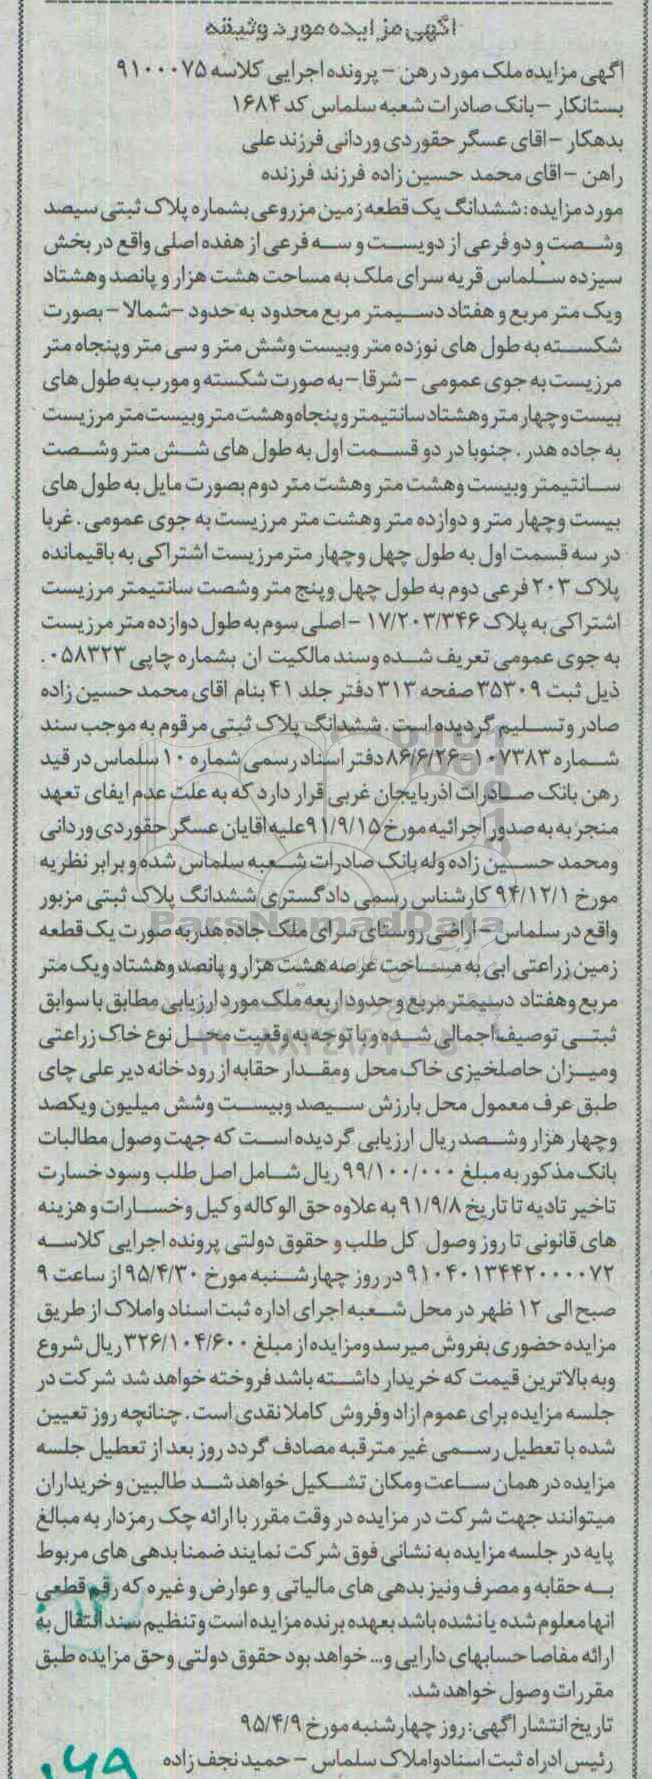 اگهی مزایده مورد وثیقه
اگهی مزایده ملک مورد رهن - پرونده اجرایی کلاسه ۹۱۰۰۰۷۵
بستانکار - بانک صادرات شعبه سلماس کد ۱۶۸۴
بدهکار - اقای عسگر حقوردی وردانی فرزند علی
راهن - اقای محمد حسین زاده فرزند فرزنده
مورد مزایده : ششدانگ یک قطعه زمین مزروعی بشماره پلاک ثبتی سیصد
وشصت و دو فرعی از دویست و سه فرعی از هفده اصلی واقع در بخش
سیزده سلماس قریه سرای ملک به مساحت هشت هزار و پانصد وهشتاد
ویک متر مربع و هفتاد دسیمتر مربع محدود به حدود - شمالا - بصورت
شکسته به طول های نوزده متر وبیست وشش متر و سی متر وپنجاه متر
مرزیست به جوی عمومی - شرقا - به صورت شکسته و مورب به طول های
بیست وچهار متر وهشتاد سانتیمتر وپنجاه وهشت متر وبیست متر مرزیست
به جاده هدر . جنوبا در دو قسمت اول به طول های شش متر وشصت
سانتیمتر وبیست وهشت متر وهشت متر دوم بصورت مایل به طول های
بیست وچهار متر و دوازده متر وهشت متر مرزیست به جوی عمومی . غربا
در سه قسمت اول به طول چهل وچهار متر مرزیست اشتراکی به باقیمانده
پلاک ۲۰۳ فرعی دوم به طول چهل وپنج متر وشصت سانتیمتر مرزیست
اشتراکی به پلاک ۱۷/۲۰۳/۳۴۶ - اصلی سوم به طول دوازده متر مرزیست
به جوی عمومی تعریف شده وسند مالکیت ان بشماره چاپی ۰۵۸۳۲۳ .
ذیل ثبت ۳۵۳۰۹ صفحه ۳۱۳ دفتر جلد ۴۱ بنام اقای محمد حسین زاده
صادر وتسلیم گردیده است . ششدانگ پلاک ثبتی مرقوم به موجب سند
شماره ۱۰۷۳۸۳-۸۶/۶/۲۶ دفتر اسناد رسمی شماره ۱۰ سلماس در قید
رهن بانک صادرات اذربایجان غربی قرار دارد که به علت عدم ایفای تعهد
منجر به به صدور اجرائیه مورخ ۹۱/۹/۱۵ علیه اقایان عسگر حقوردی وردانی
ومحمد حسین زاده وله بانک صادرات شعبه سلماس شده و برابر نظریه
مورخ ۹۴/۱۲/۱ کارشناس رسمی دادگستری ششدانگ پلاک ثبتی مزبور
واقع در سلماس - اراضی روستای سرای ملک جاده هدر به صورت یک قطعه
زمین زراعتی ابی به مساحت عرصه هشت هزار و پانصد وهشتاد ویک متر
مربع وهفتاد دسیمتر مربع و حدود اربعه ملک مورد ارزیابی مطابق با سوابق
ثبتی توصیف اجمالی شده و با توجه به وقعیت محل نوع خاک زراعتی
ومیزان حاصلخیزی خاک محل ومقدار حقابه از رود خانه دیر علی چای
طبق عرف معمول محل بارزش سیصد وبیست وشش میلیون ویکصد
وچهار هزار وشصد ریال ارزیابی گردیده است که جهت وصول مطالبات
بانک مذکور به مبلغ ۹۹/۱۰۰/۰۰۰ ریال شامل اصل طلب وسود خسارت
تاخیر تادیه تا تاریخ ۹۱/۹/۸ به علاوه حق الوکاله وکیل و خسارات و هزینه
های قانونی تا روز وصول کل طلب و حقوق دولتی پرونده اجرایی کلاسه
۹۱۰۴۰۱۳۴۴۲۰۰۰۰۷۲ در روز چهارشنبه مورخ ۹۵/۴/۳۰ از ساعت ۹
صبح الی ۱۲ ظهر در محل شعبه اجرای اداره ثبت اسناد واملاک از طریق
مزایده حضوری بفروش میرسد ومزایده از مبلغ ۳۲۶/۱۰۴/۶۰۰ ریال شروع
وبه بالاترین قیمت که خریدار داشته باشد فروخته خواهد شد شرکت در
جلسه مزایده برای عموم ازاد وفروش کاملا نقدی است . چنانچه روز تعیین
شده با تعطیل رسمی غیر مترقبه مصادف گردد روز بعد از تعطیل جلسه
مزایده در همان ساعت ومکان تشکیل خواهد شد طالبین و خریداران
میتوانند جهت شرکت در مزایده در وقت مقرر با ارائه چک رمزدار به مبالغ
پایه در جلسه مزایده به نشانی فوق شرکت نمایند ضمنا بدهی های مربوط
به حقابه و مصرف ونیز بدهی های مالیاتی وعوارض وغیره که رقم قطعی
انها معلوم شده یا نشده باشد بعهده برنده مزایده است وتنظیم سند انتقال به
ارائه مفاصا حسابهای دارایی و... خواهد بود حقوق دولتی وحق مزایده طبق
مقررات وصول خواهد شد.
تاریخ انتشار اگهی: روز چهارشنبه مورخ ۹۵/۴/۹
رئیس ادراه ثبت اسنادواملاک سلماس - حمید نجف زاده
ParsNamadData